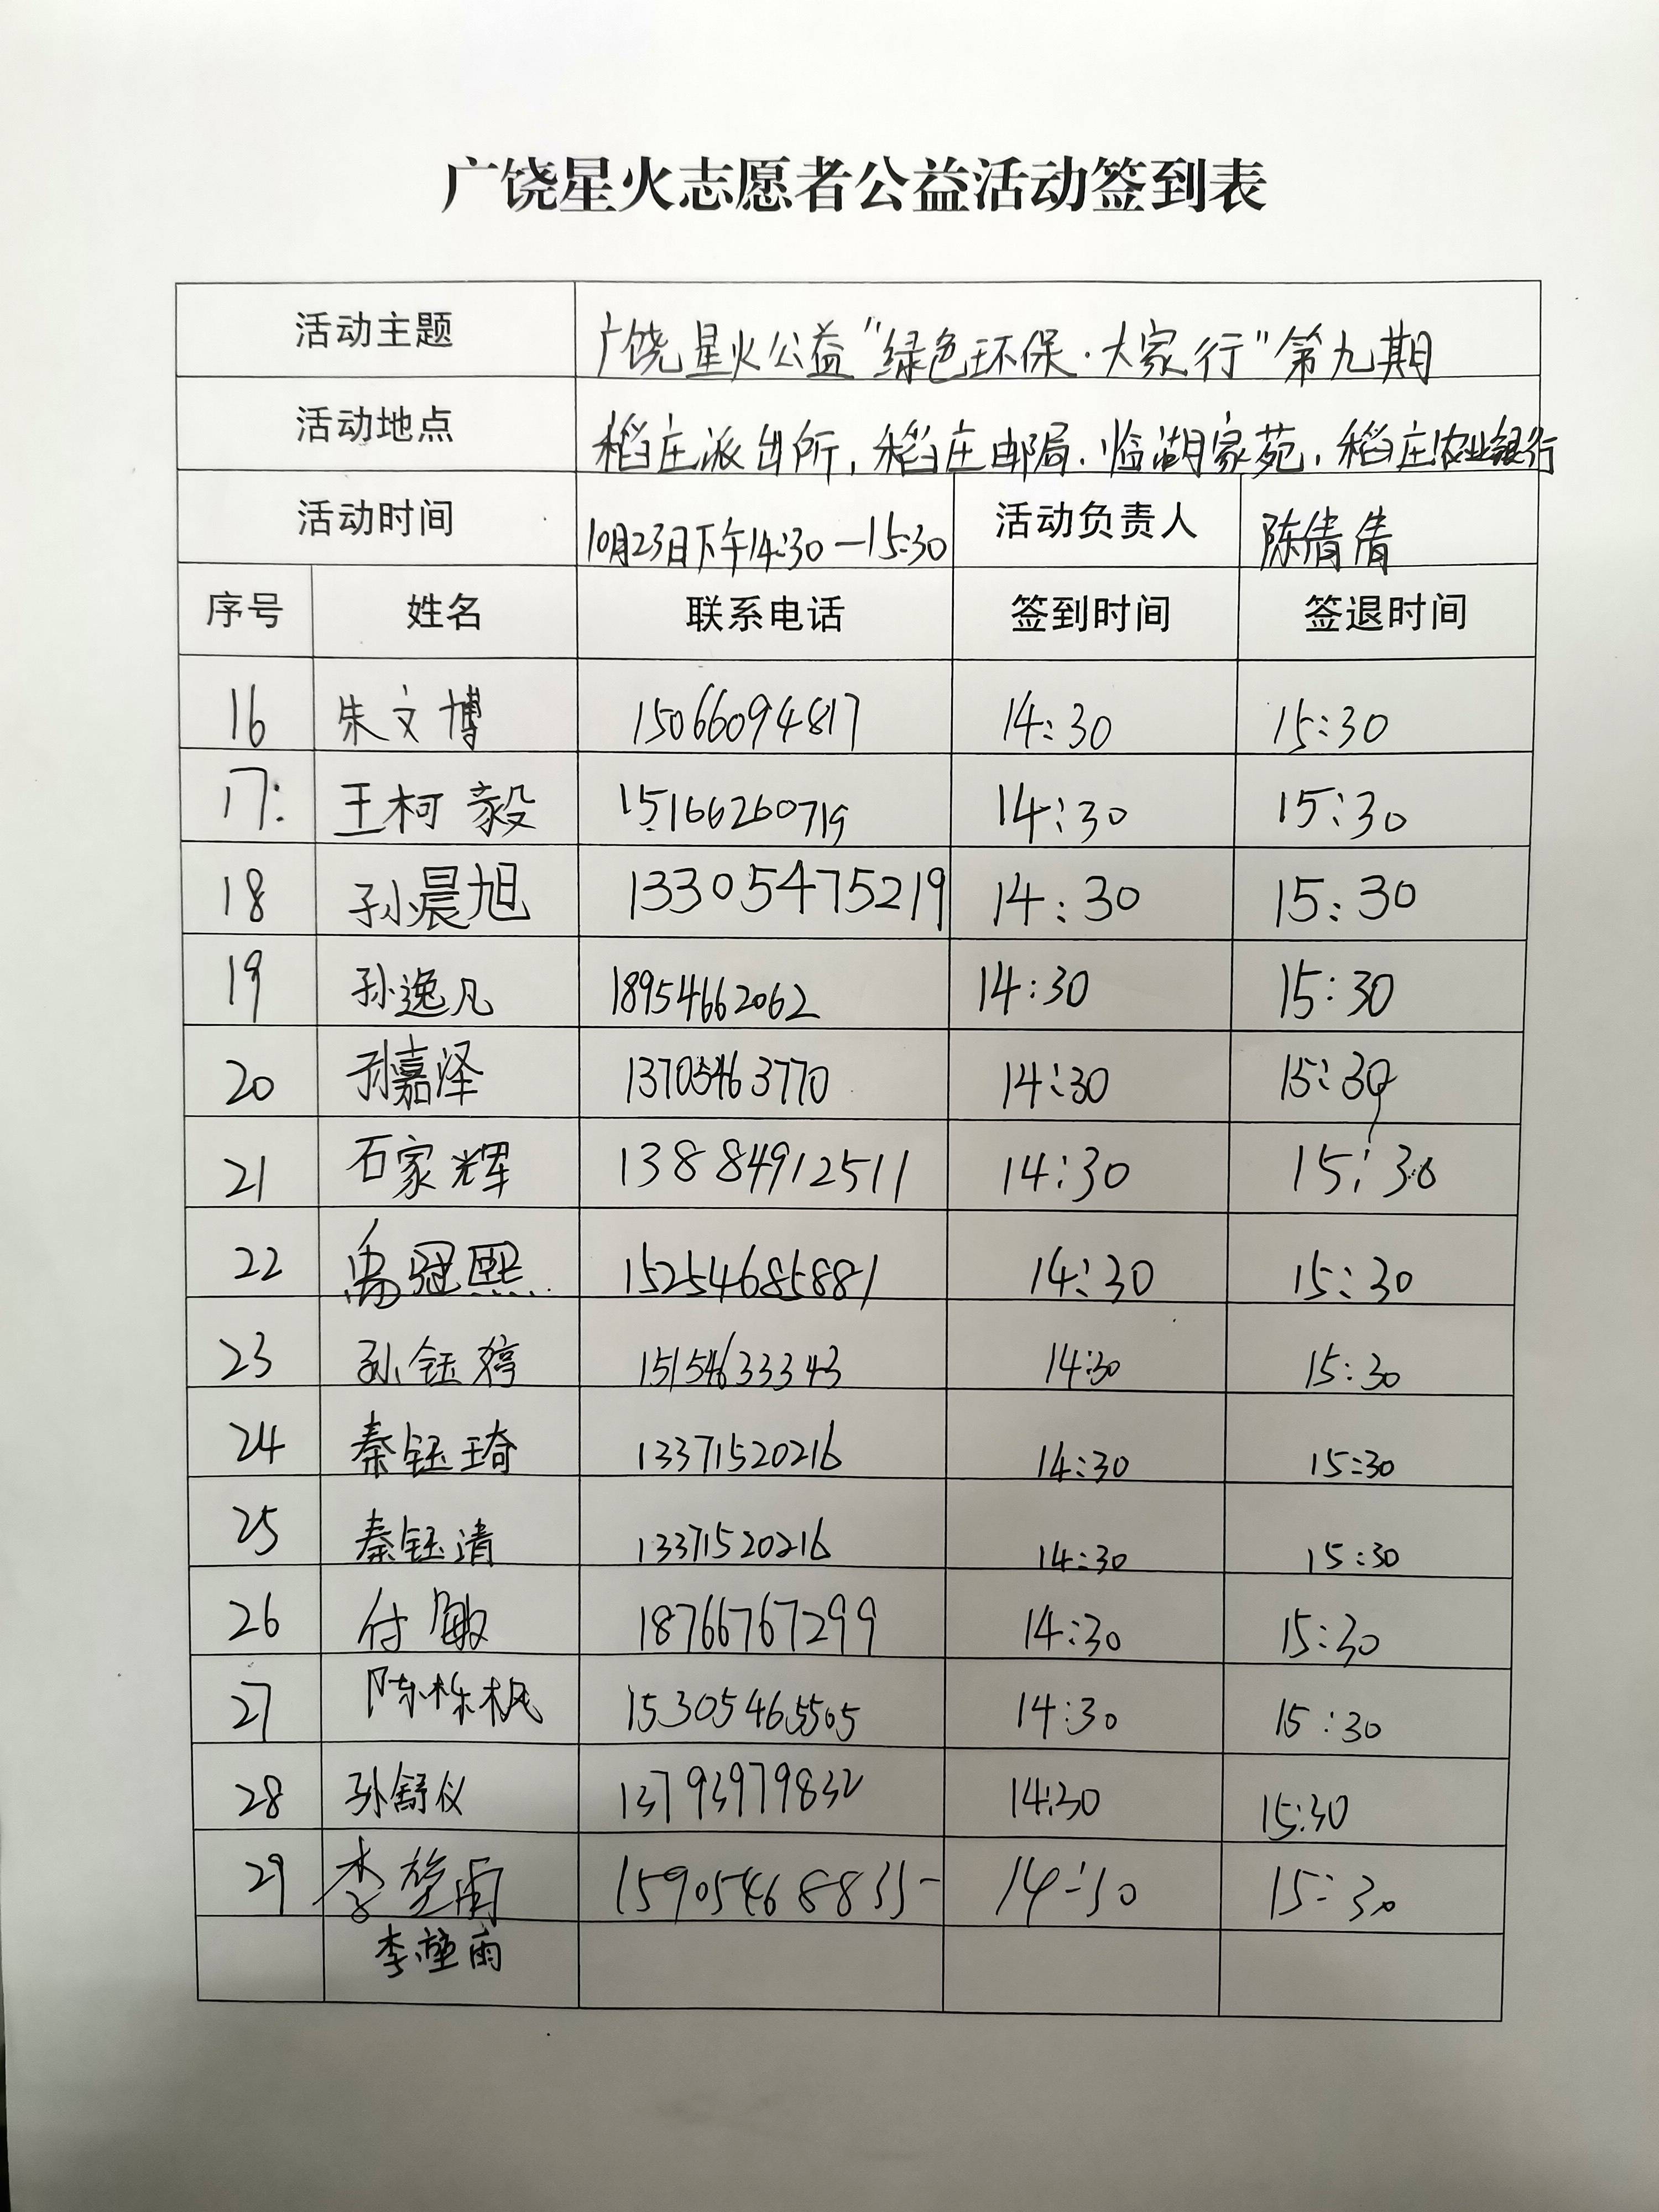 广饶星火志愿者公益活动签到表
活动主题 广饶星火公益"绿色环保·大家行"第九期
活动地点 稻庄派出所,稻庄邮局.临湖家苑.稻庄农业银行
活动时间 10月23日下午14:30—15:30 活动负责人 陈倩倩
序号 姓名 联系电话 签到时间 签退时间
16 朱文博 15066094817 14:30 15:30
17: 王柯毅 15166260719 14:30 15:30
18 孙晨旭 13305475219 14:30 15:30
19 孙逸凡 18954662062 14:30 15:30
20 孙嘉泽 13705463770 14:30 15:30
21 石家辉 13884912511 14:30 15:30
22 禹冠熙 15254685881 14:30 15:30
23 孙钰婷 15154633343 14:30 15:30
24 秦钰琦 13371520216 14:30 15:30
25 秦钰清 13371520216 14:30 15:30
26 付敏 18766767299 14:30 15:30
27 陈栋枫 15305465505 14:30 15:30
28 孙舒仪 13793979832 14:30 15:30
29 李 雨 14:30 15:30
李 雨